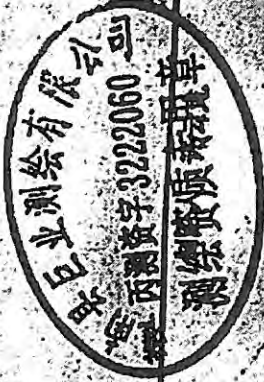 海县巨业测绘有限公司
丙测资字3222060
测绘资质专用章